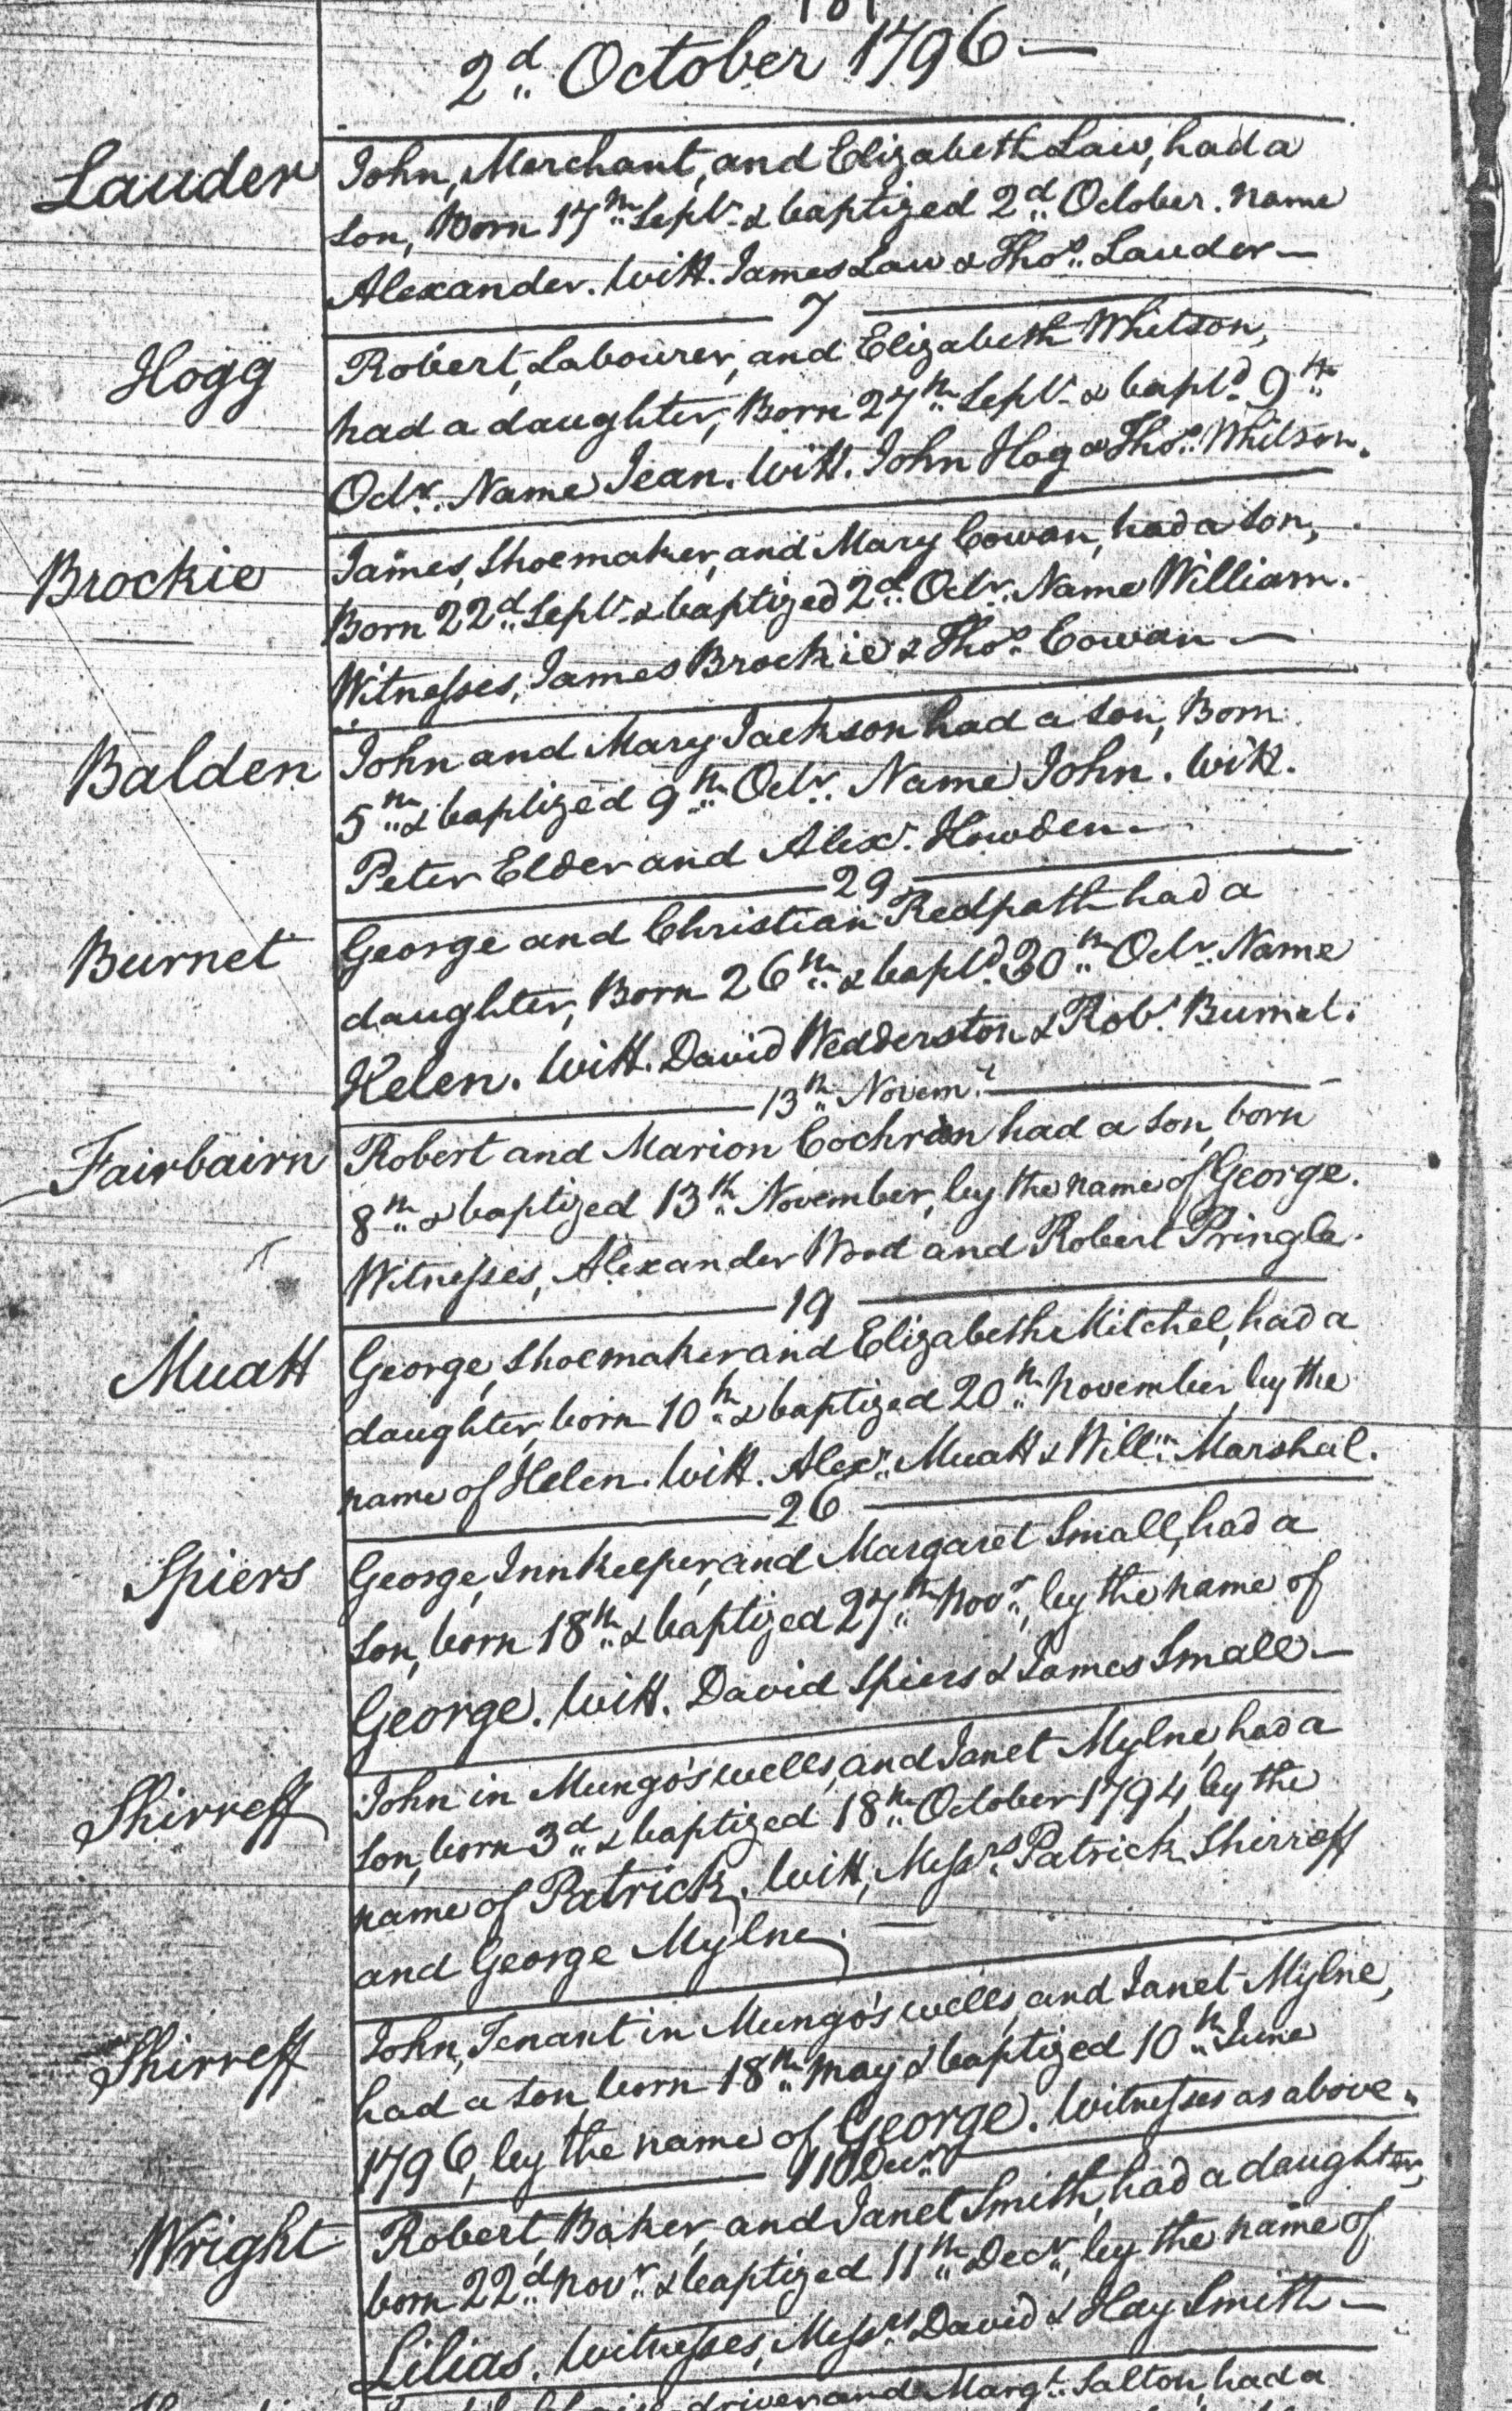 2d October 1796 —
Lauder John, Merchant, and Elizabeth Law, had a
son, Born 17th Septr. & baptized 2d October. name
Alexander. Witt. James Law & Thos. Lauder —
7
Hogg Robert, Labourer, and Elizabeth Whitson,
had a daughter, Born 27th Septr. & baptd. 9th
Octr. Name Jean. Witt. John Hog & Thos. Whitson.
Brockie James, Shoemaker, and Mary Cowan, had a son,
Born 22d Septr. & baptized 2d Octr. Name William.
Witnesses, James Brockie & Thos. Cowan —
Balden John and Mary Jackson had a son, Born
5th & baptized 9th Octr. Name John. Witt.
Peter Elder and Alexr. Howden —
29
Burnet George and Christian Redpath had a
daughter, Born 26th & baptd. 30th Octr. Name
Helen. Witt. David Wedderston & Robt. Burnet.
13th Novemr.
Fairbairn Robert and Marion Cochran had a son, born
8th & baptized 13th November, by the name of George.
Witnesses, Alexander Wood and Robert Pringle.
19
Muatt George, Shoemaker, and Elizabeth Mitchel, had a
daughter, born 10th & baptized 20th November, by the
name of Helen. Witt. Alexr. Muatt & Willm. Marshal.
26
Spiers George, Innkeeper, and Margaret Small, had a
son, born 18th & baptized 27th Novr., by the name of
George. Witt. David Spiers & James Small —
Shirreff John in Mungo's wells, and Janet Mylne, had a
son, born 3d & baptized 18th October 1794, by the
name of Patrick. Witt, Messrs. Patrick Shirreff
and George Mylne. —
Shirreff John, Tenant in Mungo's wells, and Janet Mylne,
had a son, born 18th May & baptized 10th June
1796, by the name of George. Witnesses as above.
Decr.
Wright Robert, Baker, and Janet Smith, had a daughter,
born 22d Novr. & baptized 11th Decr., by the name of
Lilias. Witnesses, Messrs. David & Hay Smith —
driver and Margt. Salton, had a